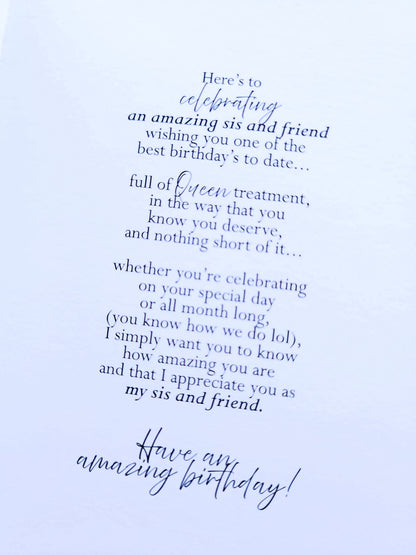 Here's to
celebrating
an amazing sis and friend
wishing you one of the
best birthday's to date...
full of Queen treatment,
in the way that you
know you deserve,
and nothing short of it...
whether you're celebrating
on your special day
or all month long,
(you know how we do lol),
I simply want you to know
how amazing you are
and that I appreciate you as
my sis and friend.
Have an
amazing birthday!